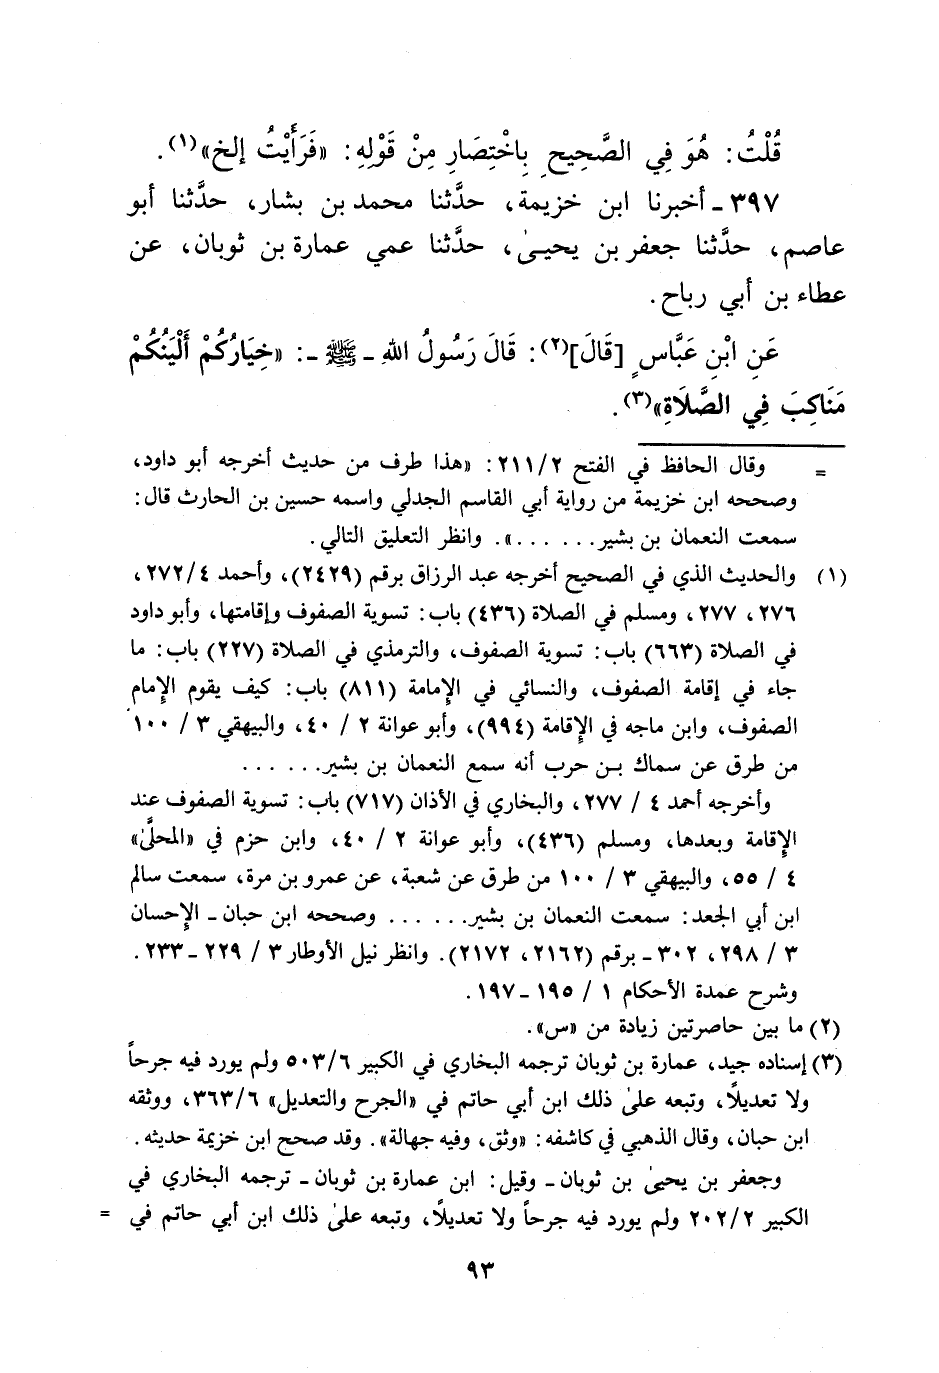 قُلْتُ: هُوَ فِي الصَّحِيحِ بِاخْتِصَارِ مِنْ قَوْلِهِ: «فَرَأَيْتُ إلخ»(١).
٣٩٧ ـ أخبرنا ابن خزيمة، حدَّثنا محمد بن بشار، حدَّثنا أبو
عاصم، حدَّثنا جعفر بن يحيىٰ، حدَّثنا عمي عمارة بن ثوبان، عن
عطاء بن أبي رباح.
عَنِ ابْنِ عَبَّاسٍ [قَالَ](٢): قَالَ رَسُولُ اللهِ ـ ﷺ ـ: «خِيَارُكُمْ أَلْيَنُكُمْ
مَنَاكِبَ فِي الصَّلَاةِ»(٣).
= وقال الحافظ في الفتح ٢١١/٢: «هذا طرف من حديث أخرجه أبو داود،
وصححه ابن خزيمة من رواية أبي القاسم الجدلي واسمه حسين بن الحارث قال:
سمعت النعمان بن بشير. . . . . .». وانظر التعليق التالي.
(١) والحديث الذي في الصحيح أخرجه عبد الرزاق برقم (٢٤٢٩)، وأحمد ٢٧٢/٤،
٢٧٦، ٢٧٧، ومسلم في الصلاة (٤٣٦) باب: تسوية الصفوف وإقامتها، وأبو داود
في الصلاة (٦٦٣) باب: تسوية الصفوف، والترمذي في الصلاة (٢٢٧) باب: ما
جاء في إقامة الصفوف، والنسائي في الإمامة (٨١١) باب: كيف يقوم الإمام
الصفوف، وابن ماجه في الإقامة (٩٩٤)، وأبو عوانة ٢ / ٤٠، والبيهقي ٣ / ١٠٠
من طرق عن سماك بن حرب أنه سمع النعمان بن بشير. . . . . .
وأخرجه أحمد ٤ / ٢٧٧، والبخاري في الأذان (٧١٧) باب: تسوية الصفوف عند
الإقامة وبعدها، ومسلم (٤٣٦)، وأبو عوانة ٢ / ٤٠، وابن حزم في «المحلَّىٰ»
٤ / ٥٥، والبيهقي ٣ / ١٠٠ من طرق عن شعبة، عن عمرو بن مرة، سمعت سالم
ابن أبي الجعد: سمعت النعمان بن بشير. . . . . . وصححه ابن حبان ـ الإحسان
٣ / ٢٩٨، ٣٠٢ ـ برقم (٢١٦٢، ٢١٧٢). وانظر نيل الأوطار ٣ / ٢٢٩ ـ ٢٣٣.
وشرح عمدة الأحكام ١ / ١٩٥ ـ ١٩٧.
(٢) ما بين حاصرتين زيادة من «س».
(٣) إسناده جيد، عمارة بن ثوبان ترجمه البخاري في الكبير ٥٠٣/٦ ولم يورد فيه جرحاً
ولا تعديلًا، وتبعه علىٰ ذلك ابن أبي حاتم في «الجرح والتعديل» ٣٦٣/٦، ووثقه
ابن حبان، وقال الذهبي في كاشفه: «وثق، وفيه جهالة». وقد صحح ابن خزيمة حديثه.
وجعفر بن يحيىٰ بن ثوبان ـ وقيل: ابن عمارة بن ثوبان ـ ترجمه البخاري في
الكبير ٢٠٢/٢ ولم يورد فيه جرحاً ولا تعديلًا، وتبعه علىٰ ذلك ابن أبي حاتم في =
٩٣